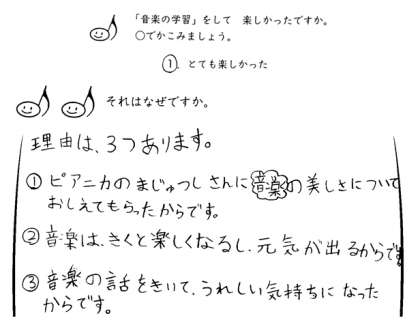 「音楽の学習」をして 楽しかったですか。
○でかこみましょう。
①. とても楽しかった
それはなぜですか。
理由は、3つあります。
①ピアニカのまじゅつしさんに音楽の美しさについて
おしえてもらったからです。
②音楽は、きくと楽しくなるし、元気が出るからです
③音楽の話をきいて、うれしい気持ちになった
からです。